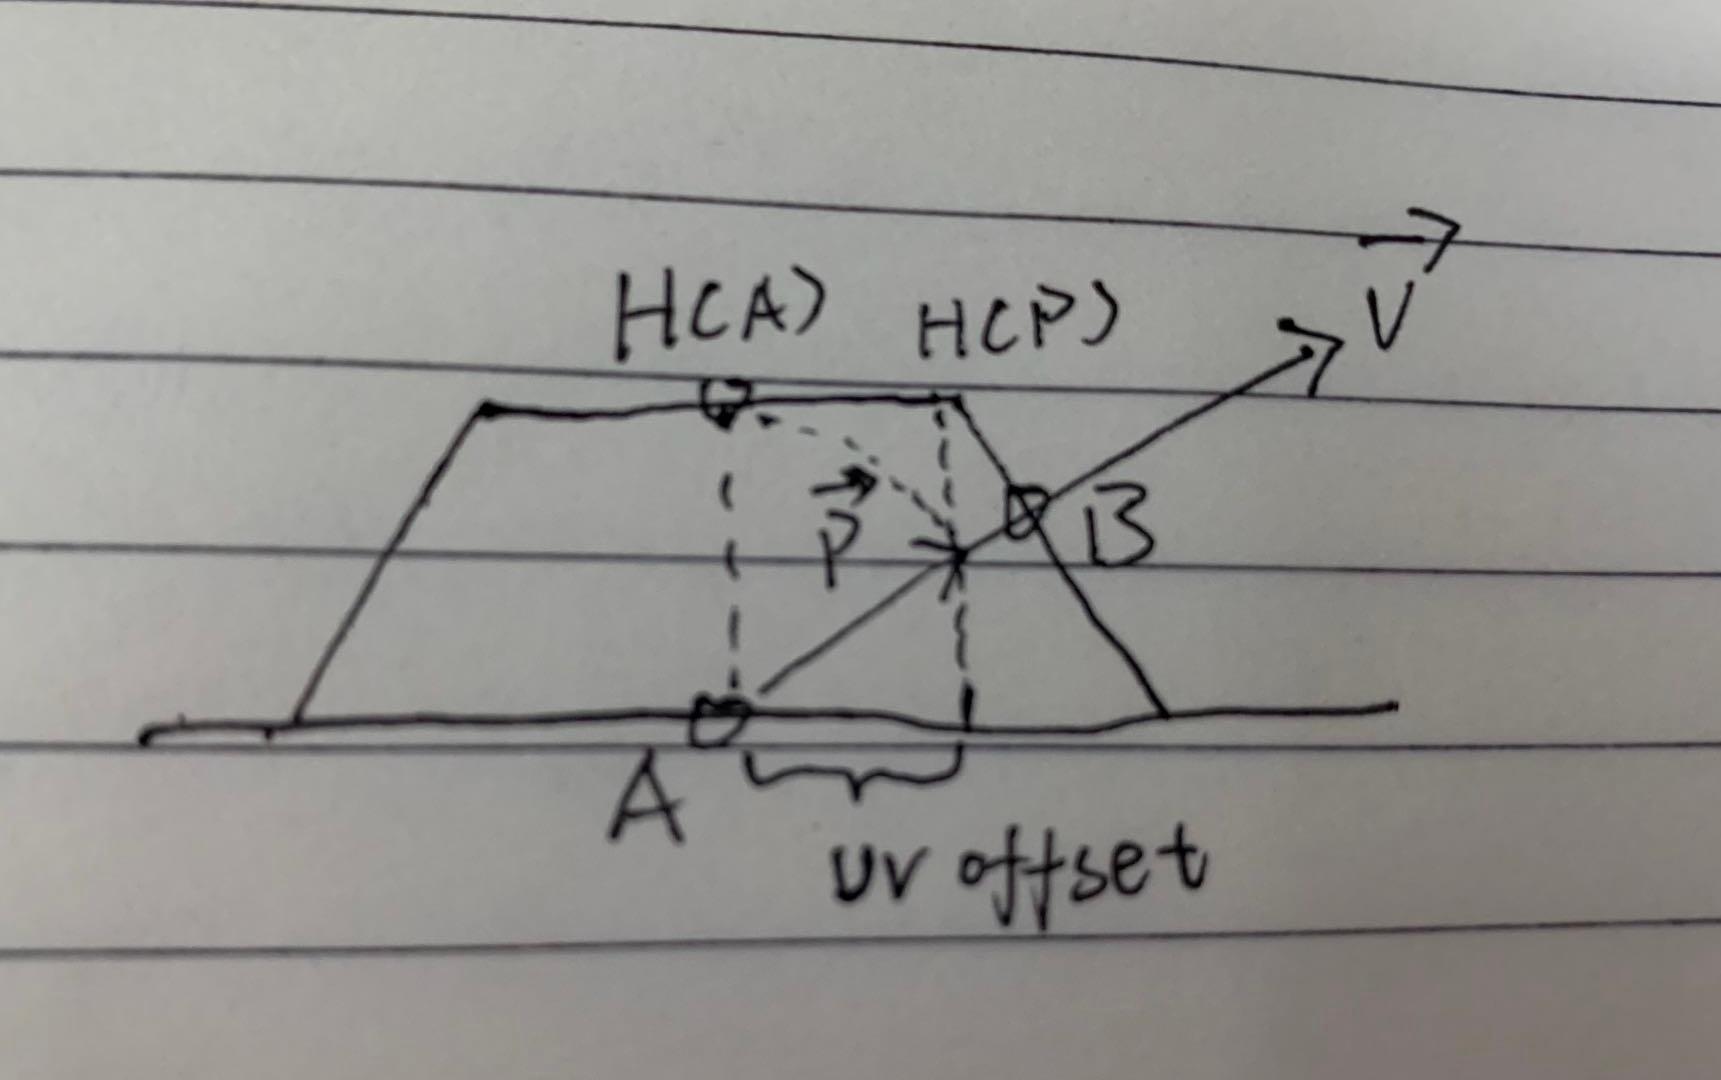 V
H(A) H(P)
P
B
A
uv offset